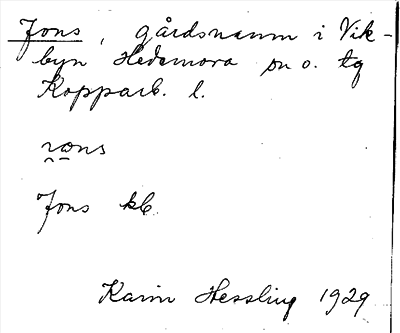 Jons, gårdsnamn i Vik-
byn Hedemora sn o. tg
Kopparb. l.
Jons kb.
Karin Hessling 1929